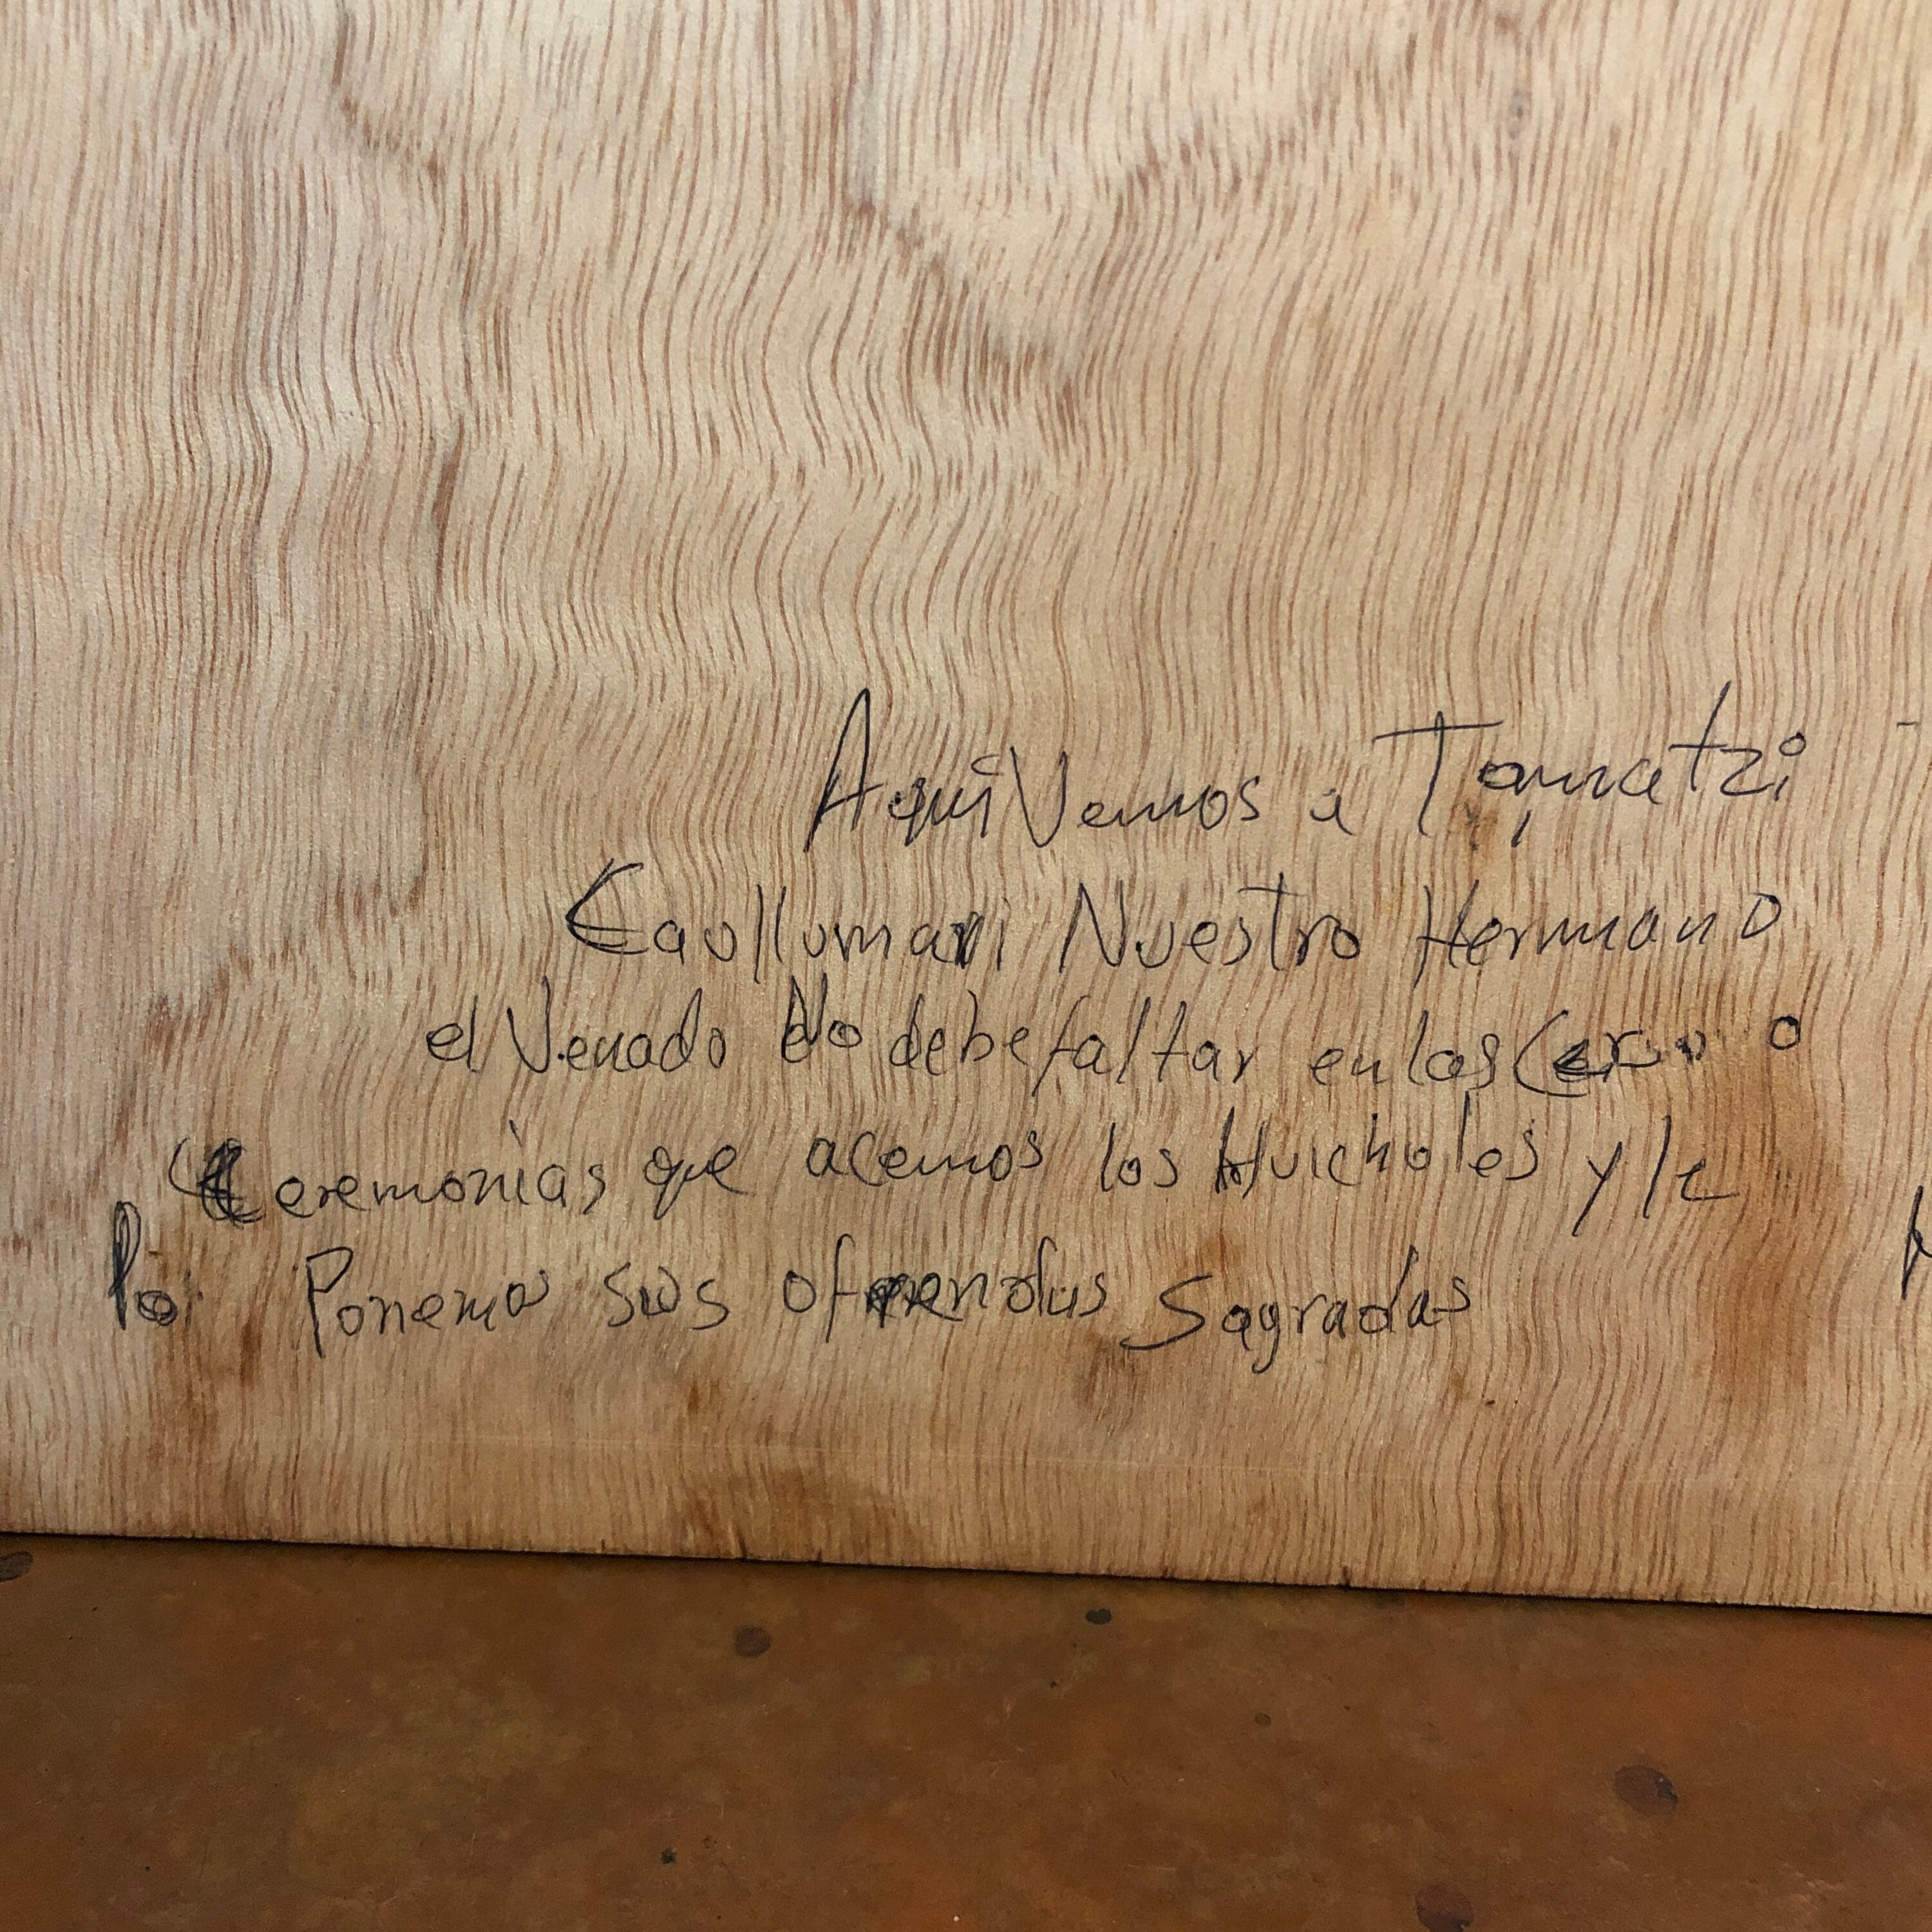 Aqui Vemos a Tamatzi
Caullumari Nuestro Hermano
el Venado No debe faltar en las
Ceremonias que acemos los Huicholes y le
Ponemos sus ofrendas Sagradas